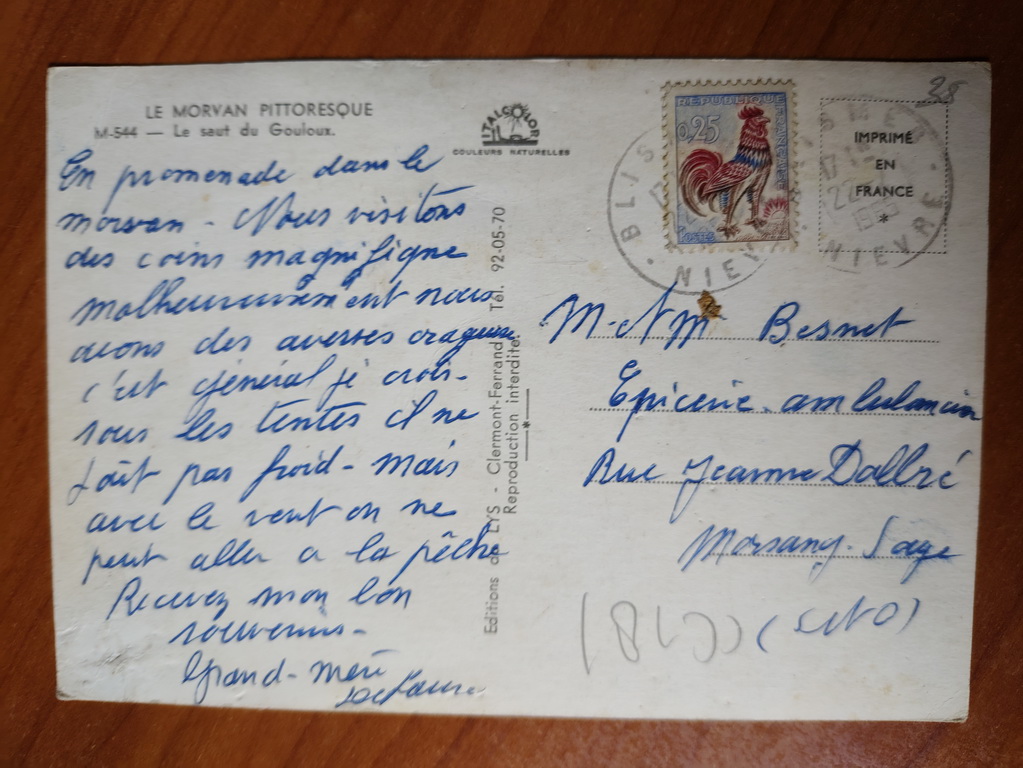 LE MORVAN PITTORESQUE
M-544 — Le saut du Gouloux.
ITALCOLOR
COULEURS NATURELLES
En promenade dans le
morvan - Nous visitons
des coins magnifique
malheureusement nous
avons des averses orageuse
c'est général je crois-
sous les tentes il ne
fait pas froid - mais
avec le vent on ne
peut aller a la pêche
Recevez mon bon
souvenirs-
Grand-mère
Editions de LYS - Clermont-Ferrand Tél. 92-05-70
Reproduction interdite
*
REPUBLIQUE FRANÇAISE
0,25
POSTES
NIEVRE
IMPRIMÉ
EN
FRANCE
*
28
M. et Mme Besnet
Epicerie ambulancier
Rue Jeanne Dallré
Morsang